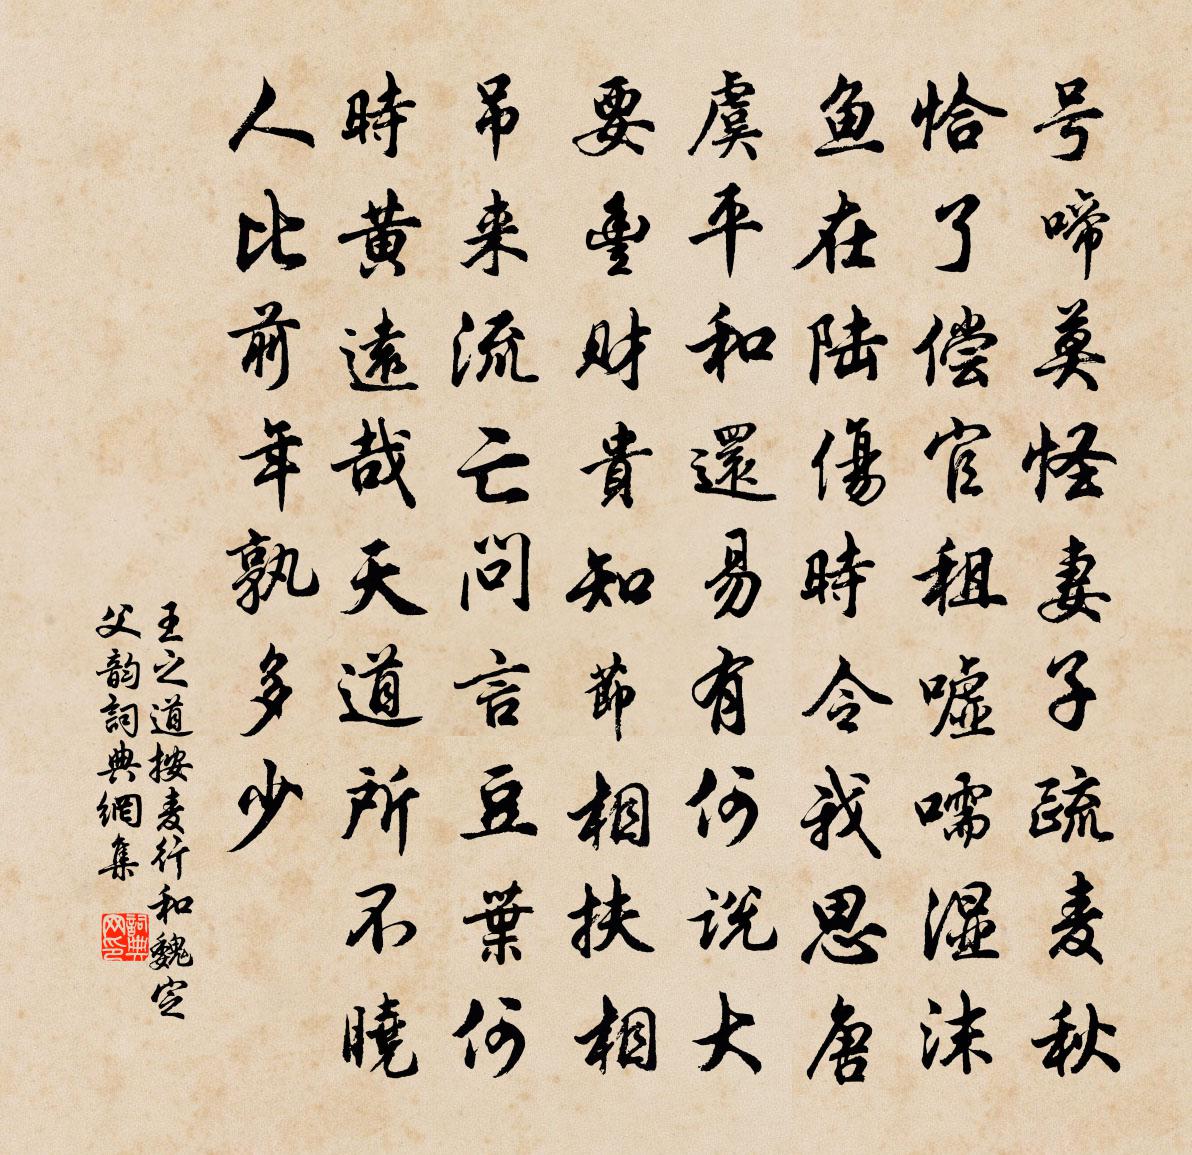 号啼莫怪妻子疏麦秋
恰了偿官租嘘嚅湿沫
鱼在陆傷時令我思唐
虞平和還易有何说大
要豐财貴知節相扶相
吊来流亡問言豆葉何
時黄遠哉天道所不曉
人比前年孰多少
王之道按麦行和魏定
父韵詞典網集
詞典网印